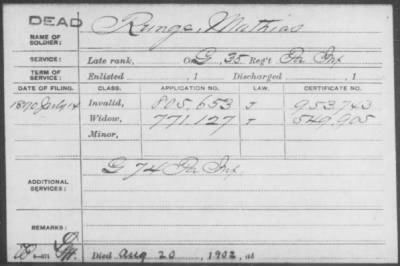 DEAD
NAME OF SOLDIER: Runge, Mathias
SERVICE: Late rank, Co. G, 35 Reg't Pa. Inf.
TERM OF SERVICE: Enlisted , 1 Discharged , 1
DATE OF FILING. CLASS. APPLICATION NO. LAW. CERTIFICATE NO.
1890 July 14 Invalid, 805,653 J 953,743
Widow, 771,127 J 549,905
Minor,
ADDITIONAL SERVICES: G 74 Pa. Inf.
REMARKS:
Died Aug 20, 1902, at